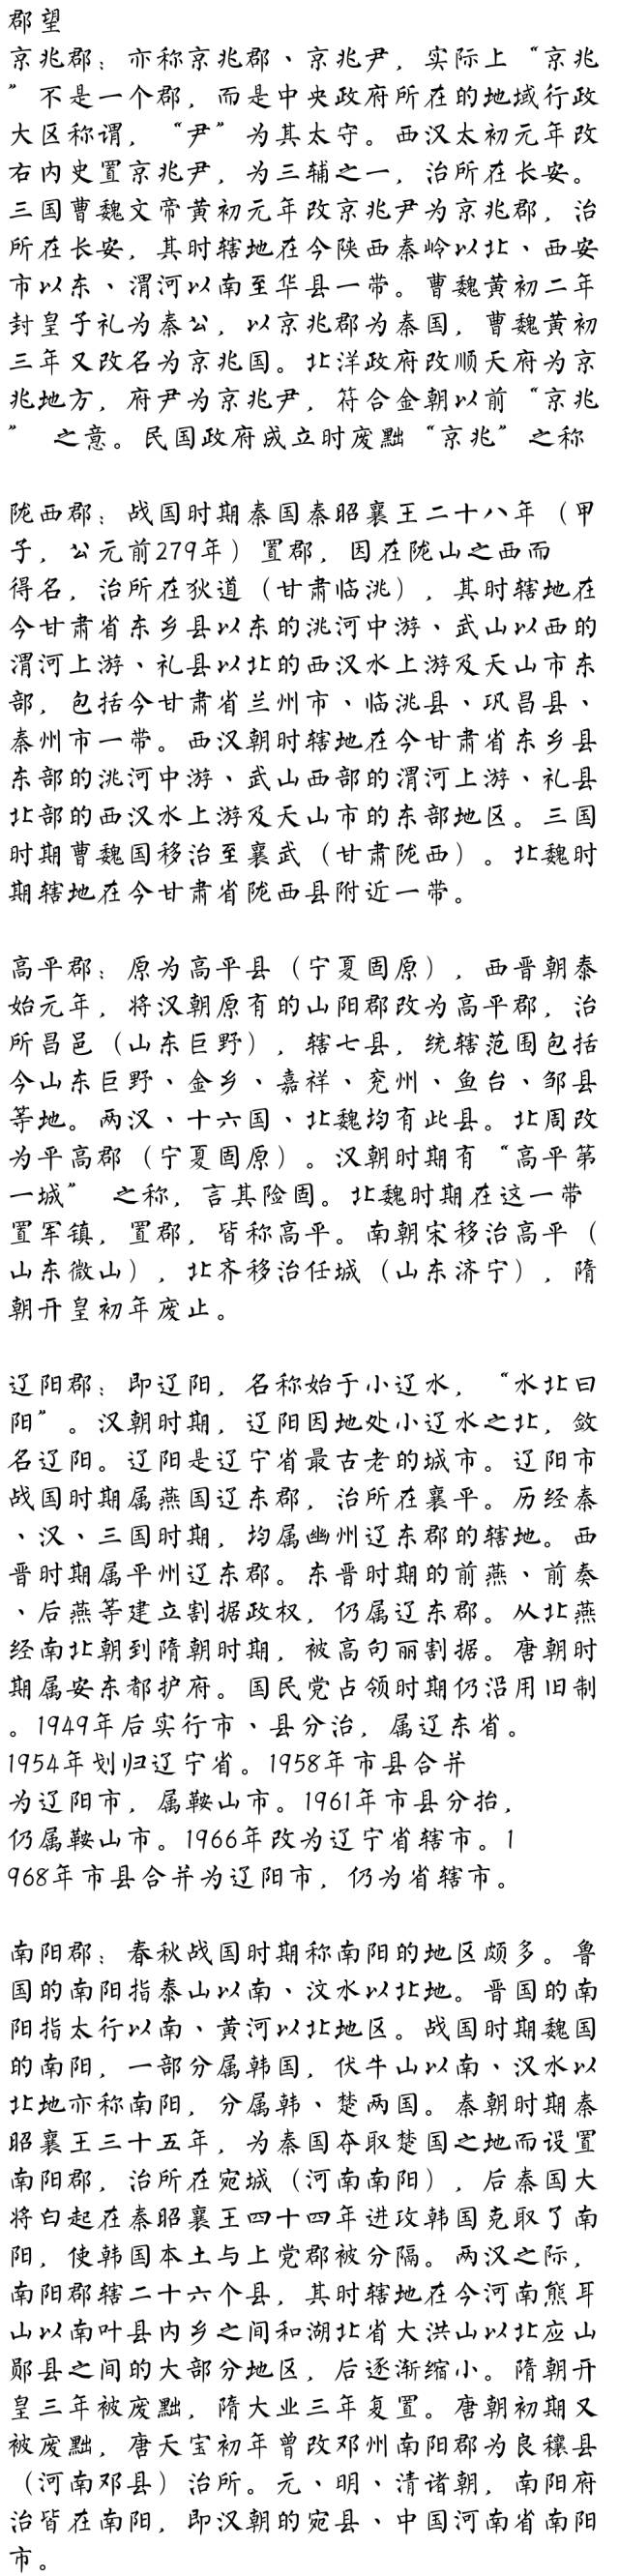 郡望
京兆郡：亦称京兆郡、京兆尹，实际上“京兆
”不是一个郡，而是中央政府所在的地域行政
大区称谓，“尹”为其太守。西汉太初元年改
右内史置京兆尹，为三辅之一，治所在长安。
三国曹魏文帝黄初元年改京兆尹为京兆郡，治
所在长安，其时辖地在今陕西秦岭以北、西安
市以东、渭河以南至华县一带。曹魏黄初二年
封皇子礼为秦公，以京兆郡为秦国，曹魏黄初
三年又改名为京兆国。北洋政府改顺天府为京
兆地方，府尹为京兆尹，符合金朝以前“京兆
” 之意。民国政府成立时废黜“京兆”之称
陇西郡：战国时期秦国秦昭襄王二十八年（甲
子，公元前279年）置郡，因在陇山之西而
得名，治所在狄道（甘肃临洮），其时辖地在
今甘肃省东乡县以东的洮河中游、武山以西的
渭河上游、礼县以北的西汉水上游及天山市东
部，包括今甘肃省兰州市、临洮县、巩昌县、
秦州市一带。西汉朝时辖地在今甘肃省东乡县
东部的洮河中游、武山西部的渭河上游、礼县
北部的西汉水上游及天山市的东部地区。三国
时期曹魏国移治至襄武（甘肃陇西）。北魏时
期辖地在今甘肃省陇西县附近一带。
高平郡：原为高平县（宁夏固原），西晋朝泰
始元年，将汉朝原有的山阳郡改为高平郡，治
所昌邑（山东巨野），辖七县，统辖范围包括
今山东巨野、金乡、嘉祥、兖州、鱼台、邹县
等地。两汉、十六国、北魏均有此县。北周改
为平高郡（宁夏固原）。汉朝时期有“高平第
一城” 之称，言其险固。北魏时期在这一带
置军镇，置郡，皆称高平。南朝宋移治高平（
山东微山），北齐移治任城（山东济宁），隋
朝开皇初年废止。
辽阳郡：即辽阳，名称始于小辽水，“水北曰
阳”。汉朝时期，辽阳因地处小辽水之北，敛
名辽阳。辽阳是辽宁省最古老的城市。辽阳市
战国时期属燕国辽东郡，治所在襄平。历经秦
、汉、三国时期，均属幽州辽东郡的辖地。西
晋时期属平州辽东郡。东晋时期的前燕、前奏
、后燕等建立割据政权，仍属辽东郡。从北燕
经南北朝到隋朝时期，被高句丽割据。唐朝时
期属安东都护府。国民党占领时期仍沿用旧制
。1949年后实行市、县分治，属辽东省。
1954年划归辽宁省。1958年市县合并
为辽阳市，属鞍山市。1961年市县分抬，
仍属鞍山市。1966年改为辽宁省辖市。1
968年市县合并为辽阳市，仍为省辖市。
南阳郡：春秋战国时期称南阳的地区颇多。鲁
国的南阳指泰山以南、汶水以北地。晋国的南
阳指太行以南、黄河以北地区。战国时期魏国
的南阳，一部分属韩国，伏牛山以南、汉水以
北地亦称南阳，分属韩、楚两国。秦朝时期秦
昭襄王三十五年，为秦国夺取楚国之地而设置
南阳郡，治所在宛城（河南南阳），后秦国大
将白起在秦昭襄王四十四年进攻韩国克取了南
阳，使韩国本土与上党郡被分隔。两汉之际，
南阳郡辖二十六个县，其时辖地在今河南熊耳
山以南叶县内乡之间和湖北省大洪山以北应山
郧县之间的大部分地区，后逐渐缩小。隋朝开
皇三年被废黜，隋大业三年复置。唐朝初期又
被废黜，唐天宝初年曾改邓州南阳郡为良穰县
（河南邓县）治所。元、明、清诸朝，南阳府
治皆在南阳，即汉朝的宛县、中国河南省南阳
市。